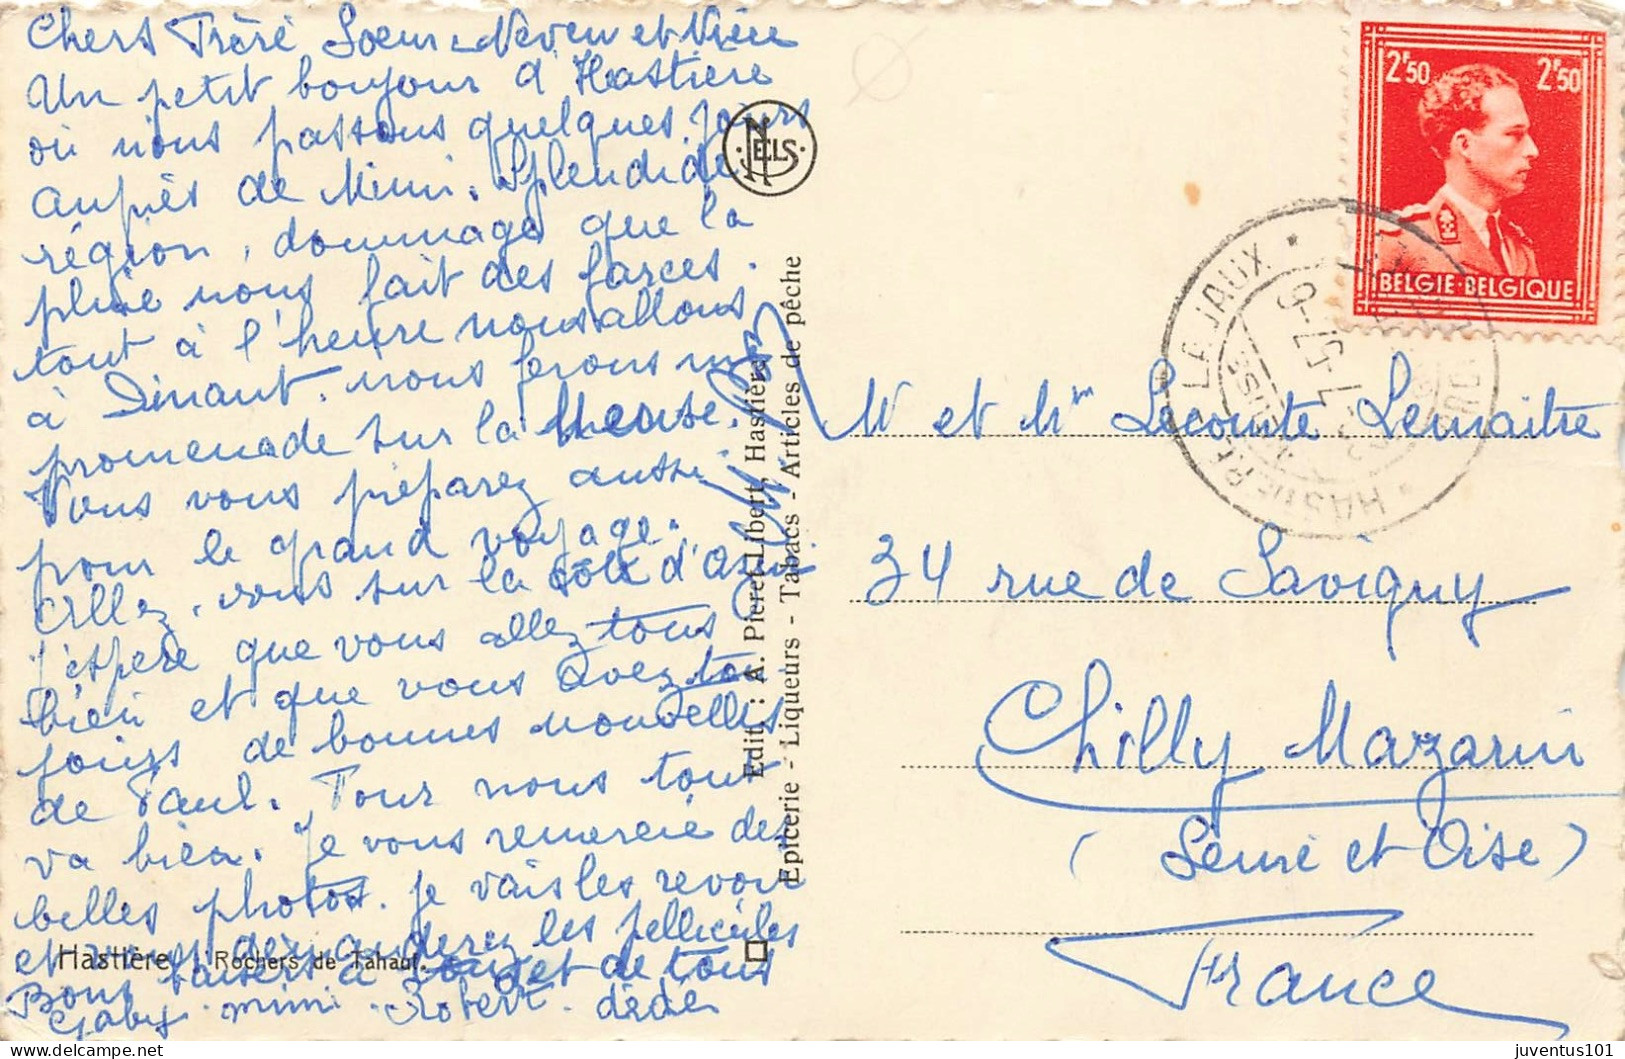 Chers Frère Soeur Neveu et Nièce
Un petit bonjour d'Hastière
où nous passons quelques jours
auprès de Mimi. Splendide
région, dommage que la
pluie nous fait des farces.
tout à l'heure nous allons
à Dinant. nous ferons une
promenade sur la Meuse.
Vous vous préparez aussi
pour le grand voyage.
Allez, vous sur la côte d'Azur
j'espère que vous allez tous
bien et que vous avez tou
jours de bonnes nouvelles
de Paul. Pour nous tout
va bien. Je vous remercie des
belles photos. je vais les revoir
et les pellicules
Bons baisers à tous et de tous
Gaby. mimi. Robert. dédé
Hastière. Rochers de Tahaut.
NELS
Edit.: A. Pieret-Libert, Hastière
Epicerie - Liqueurs - Tabacs - Articles de pêche
2F50 2F50
BELGIE-BELGIQUE
HASTIERE-LAVAUX
M et Mm Lecomte Lemaitre
34 rue de Savigny
Chilly Mazarin
(Seine et Oise)
France
juventus101